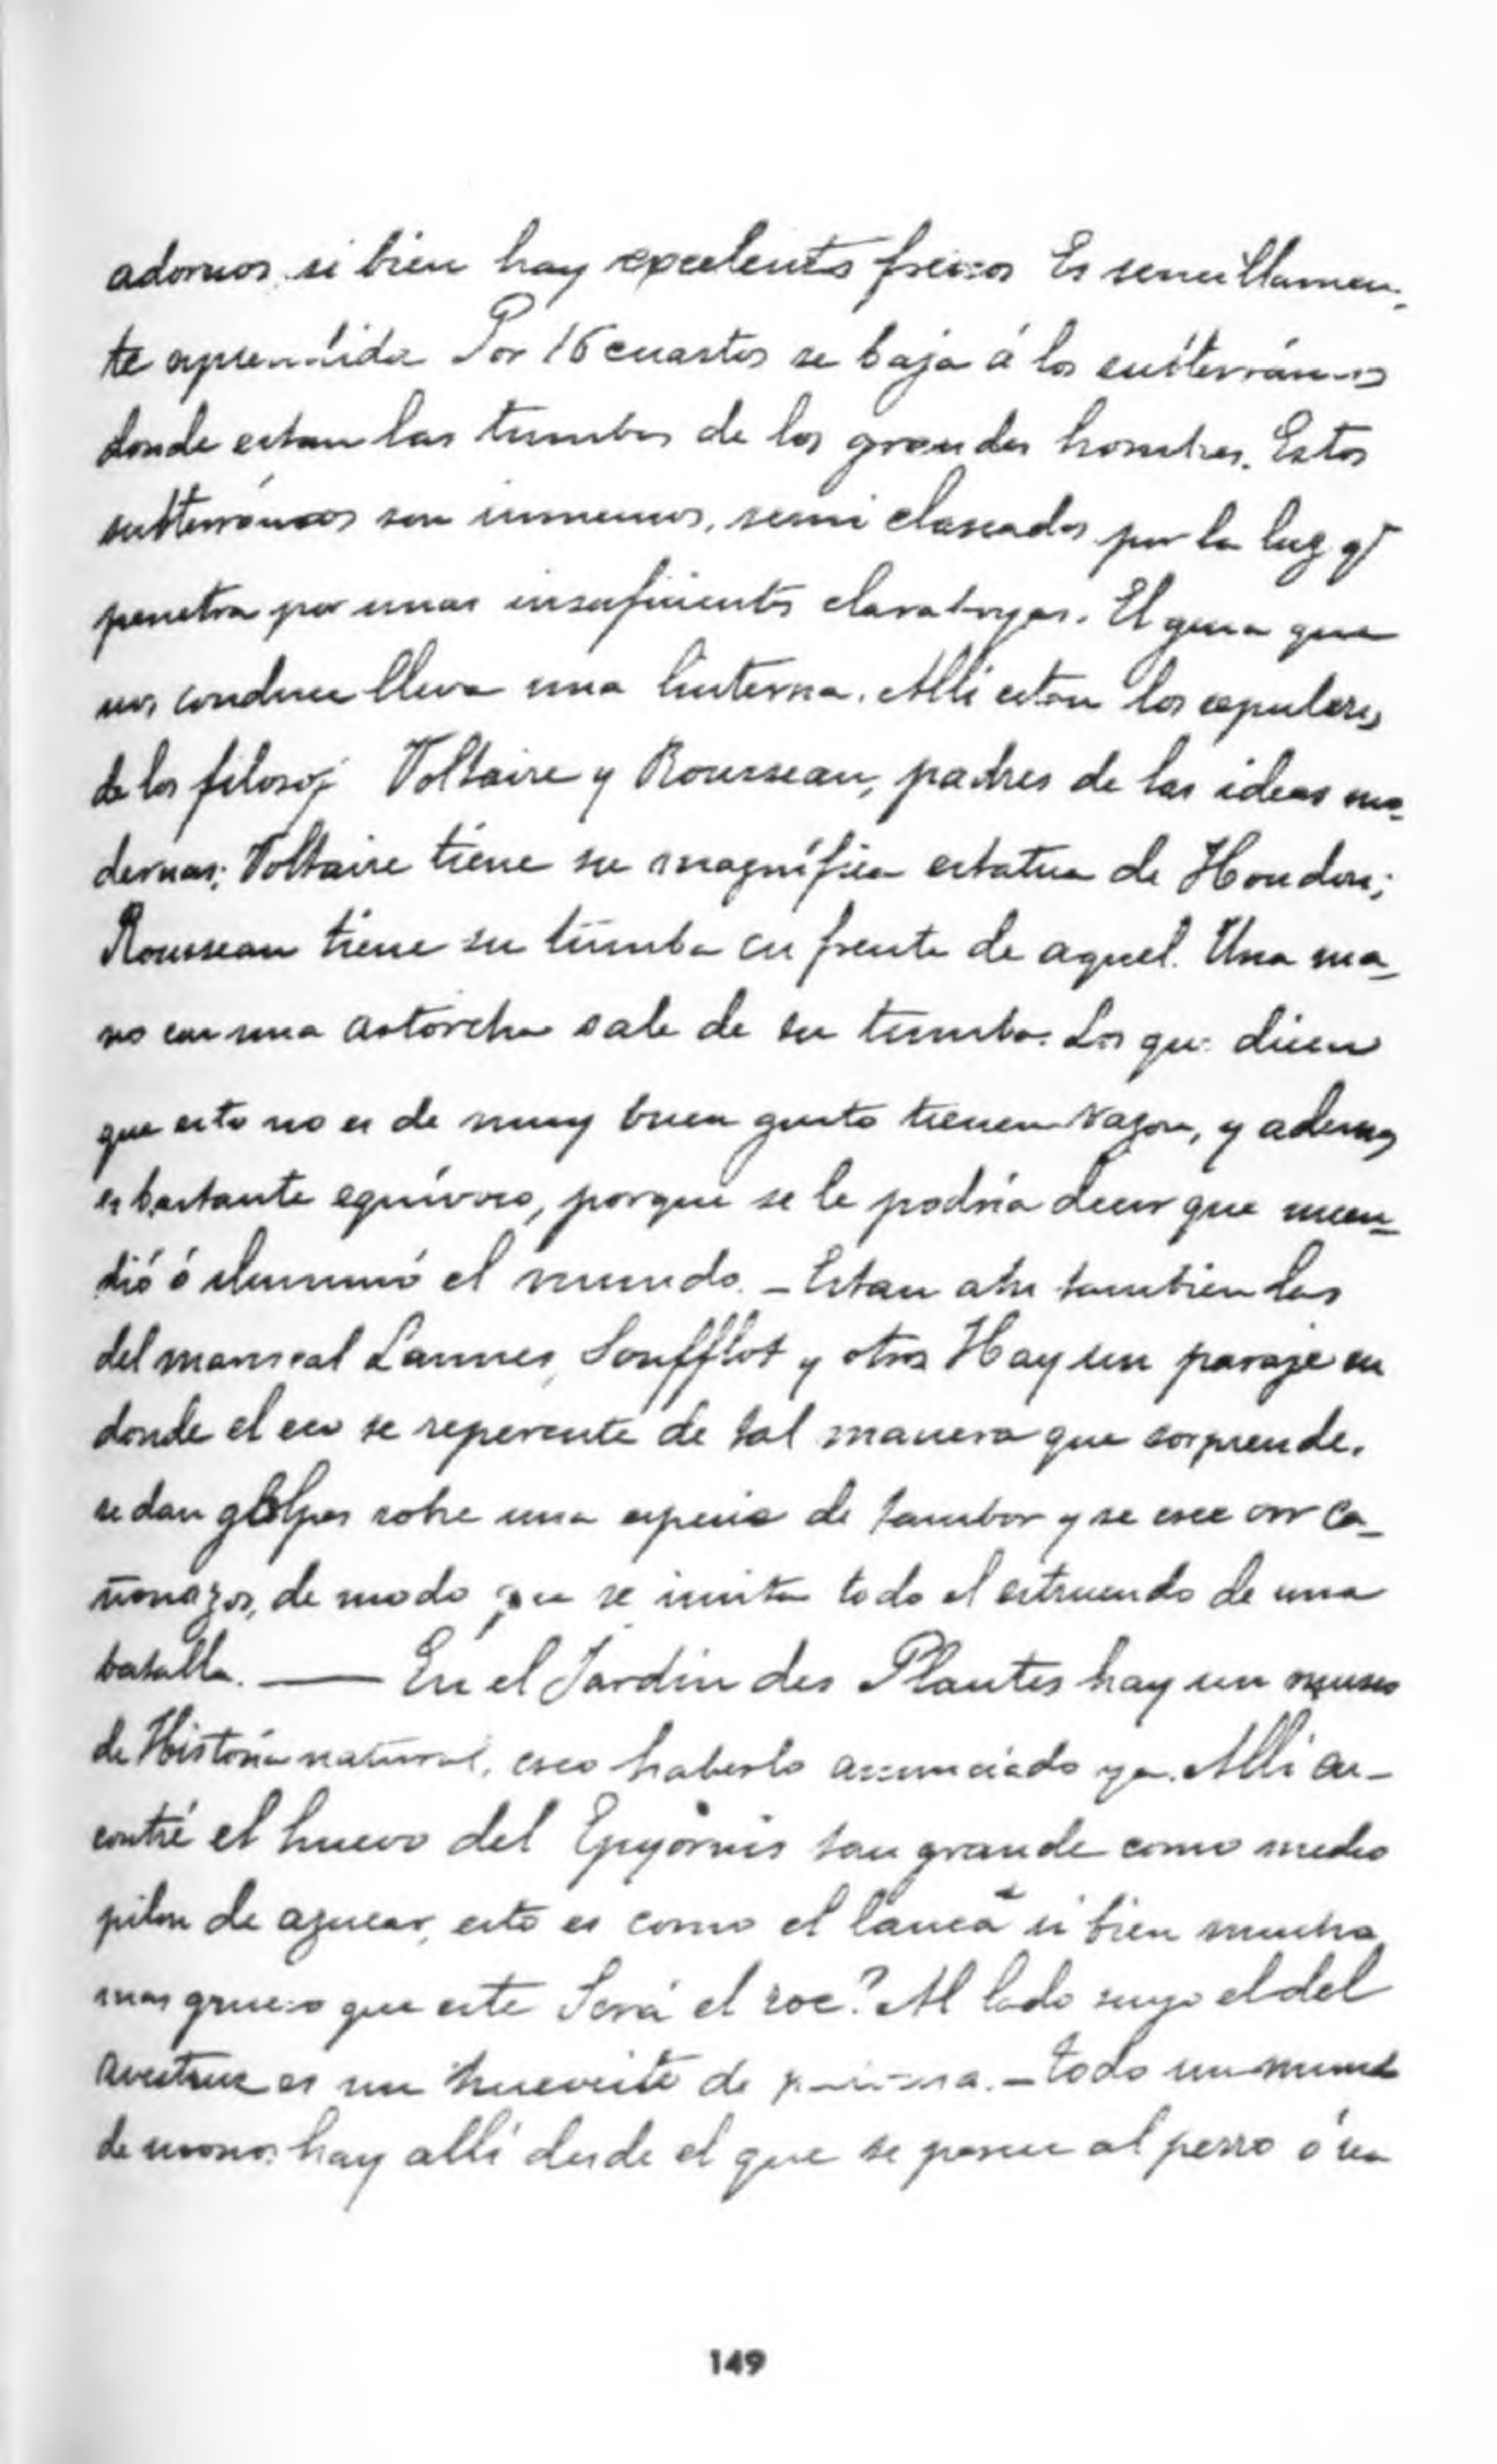 adornos, si bien hay excelentes frescos Es sencillamen-
te esplendida Por 16 cuartos se baja á los subterráneos
donde estan las tumbas de los grandes hombres. Estos
subterráneos son inmensos, semi clareados por la luz q̃
penetra por unas insuficientes claraboyas. El guia que
nos conduce lleva una linterna. Alli estan los sepulcros
de los filosof Voltaire y Rousseau, padres de las ideas mo-
dernas; Voltaire tiene su magnífica estatua de Houdon;
Rousseau tiene su tumba en frente de aquel. Una ma-
no con una antorcha sale de su tumba. Los que dicen
que esto no es de muy buen gusto tienen razon, y ademas
es bastante equívoco, porque se le podría decir que incen-
dió ó iluminó el mundo. - Estan ahi tambien las
del mariscal Lannes, Soufflot y otros Hay un paraje en
donde el eco se repercute de tal manera que sorprende.
se dan golpes sobre una especie de tambor y se cree oir ca-
ñonazos, de modo que se imita todo el estruendo de una
batalla. — En el Jardin des Plantes hay un museo
de Historia natural, creo haberlo anunciado ya. Alli en-
contré el huevo del Epyornis tan grande como medio
pilon de azucar, esto es como el lañcá si bien mucho
mas grueso que este Será el roc? Al lado suyo el del
avestruz es un huevecito de . - Todo un mund
de monos hay allí desde el que se parece al perro ó en
149